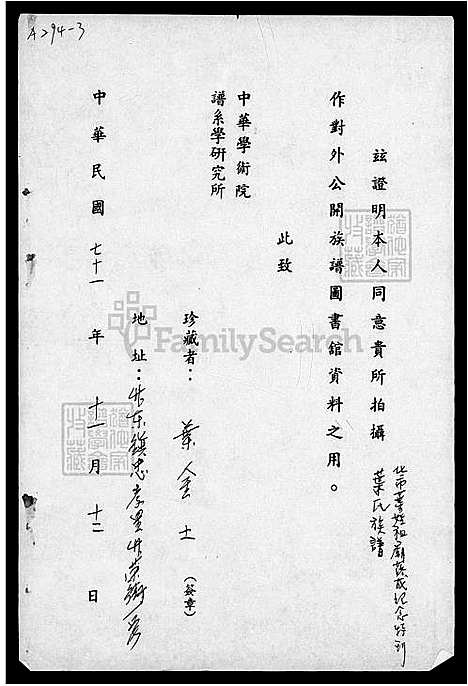 A294-3
玆證明本人同意貴所拍攝 葉氏族譜
北市葉姓祖廟落成紀念特刊
作對外公開族譜圖書館資料之用。
此致
中華學術院
譜系學研究所
珍藏者： 葉金士 (簽章)
地址：竹東鎮忠孝里
中華民國七十一年十一月十二日
FamilySearch